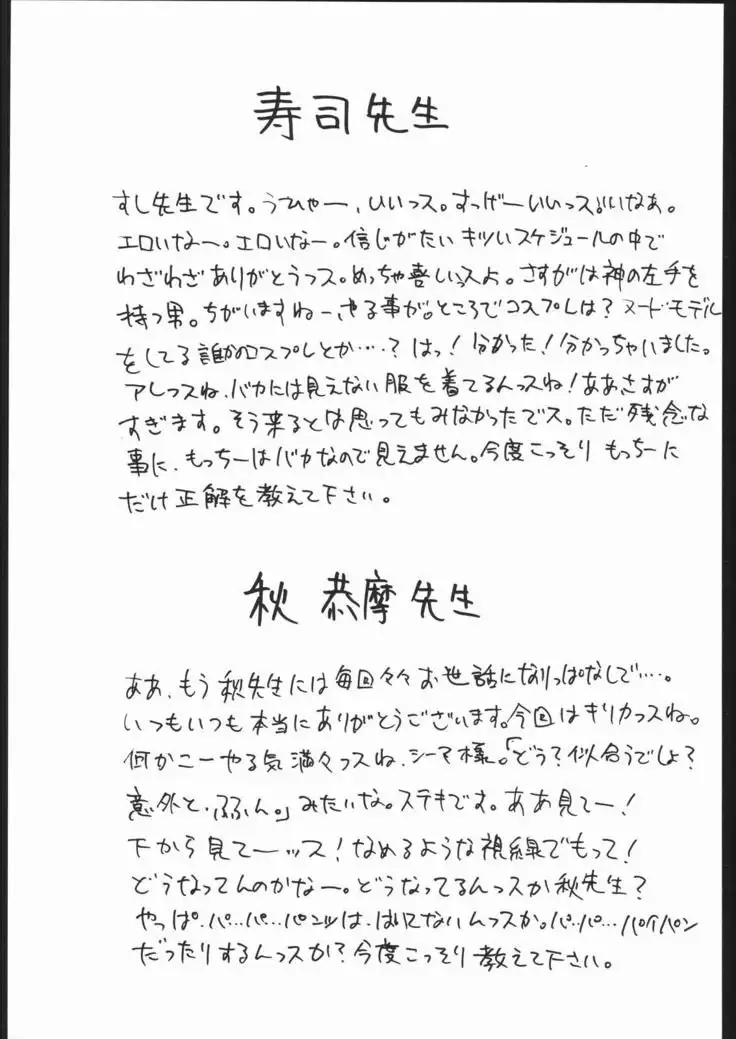 寿司先生
すし先生です。うひゃー、いいっス。すっげーいいっス。いいなぁ。
エロいなー。エロいなー。信じがたいキツいスケジュールの中で
わざわざありがとうっス。めっちゃ喜しいっスよ。さすがは神の左手を
持つ男。ちがいますねー、やる事が。ところでコスプレは？ヌードモデル
をしてる誰かのコスプレとか…．？はっ！分かった！分かっちゃいました。
アレっスね、バカには見えない服を着てるんっスね！ああさすが
すぎます。そう来るとは思ってもみなかったでス。ただ残念な
事に、もっちーはバカなので見えません。今度こっそりもっちーに
だけ正解を教えて下さい。
秋 恭摩先生
ああ、もう秋先生には毎回々々お世話になりっぱなしで…．。
いつもいつも本当にありがとうございます。今回はキリカっスね。
何かこーやる気満々っスね、シーマ様。「どう？似合うでしょ？
意外と、ふふん。」みたいな。ステキです。ああ見てー！
下から見てーッス！なめるような視線でもって！
どうなってんのかなー。どうなってるんっスか秋先生？
やっぱ、パ…パ…パンツは、はいてないんっスか。パ…パ…パイパン
だったりするんっスか？今度こっそり教えて下さい。